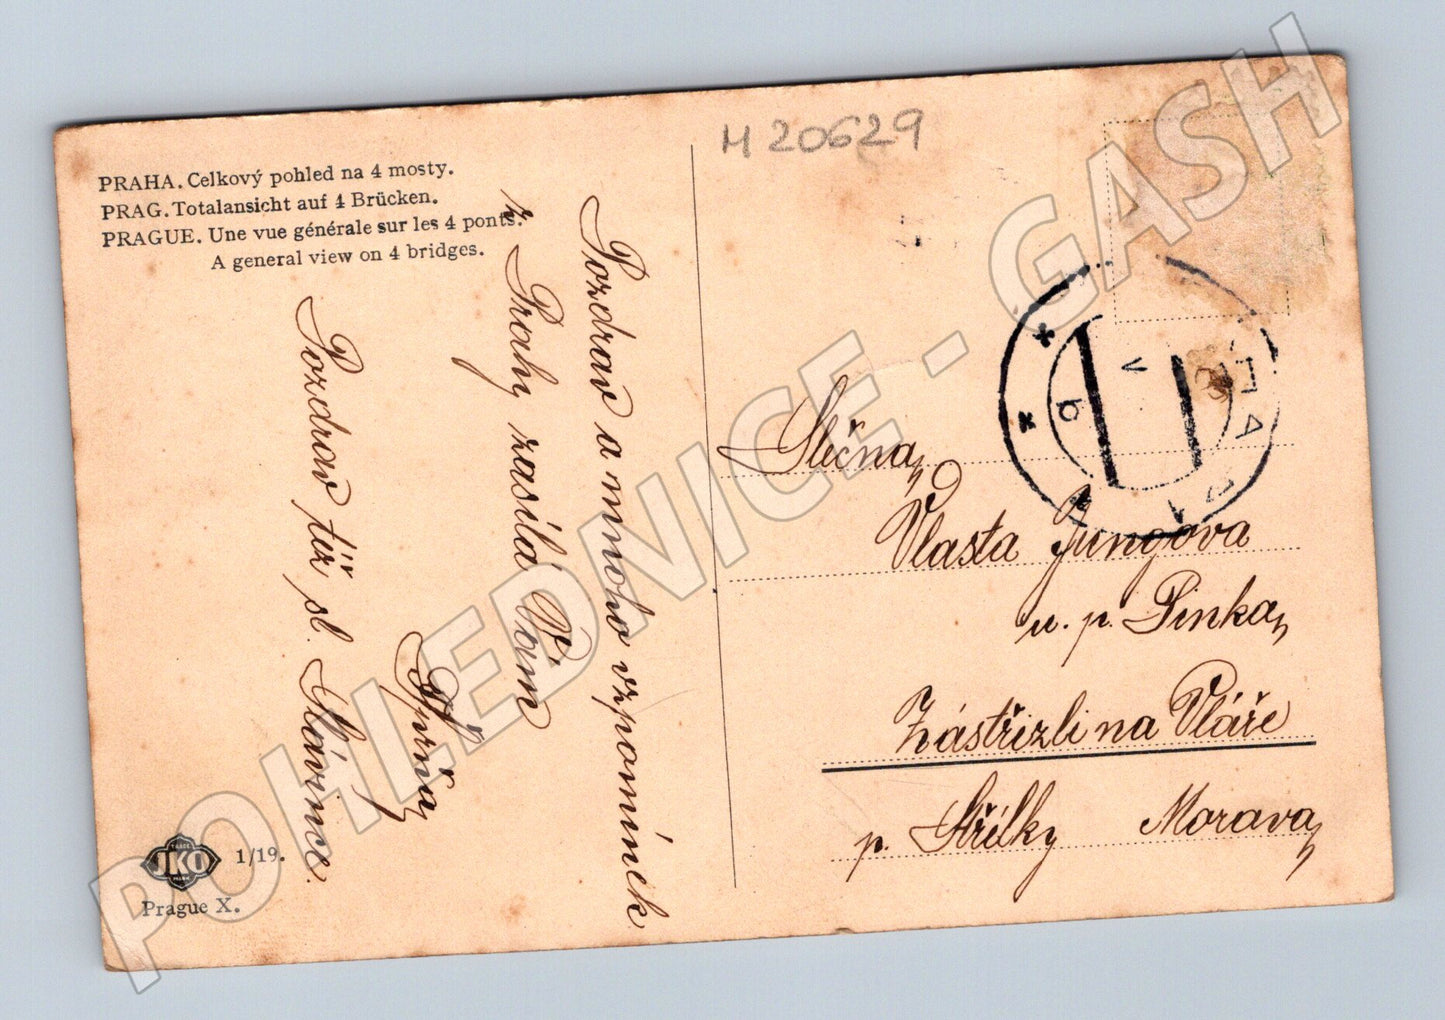 PRAHA. Celkový pohled na 4 mosty.
PRAG. Totalansicht auf 4 Brücken.
PRAGUE. Une vue générale sur les 4 ponts.
A general view on 4 bridges.
M 20629
Pozdrav a mnoho vzpomínek
z Prahy zasílá Vám
Pozdrav též sl. Slávince.
Slečna,
Vlasta Jungova
u. p. Pinka,
Zástřizli na Vláře
p. Střílky Morava,
TRADE
JKO
MARK
1/19.
Prague X.
V
b
POHLEDNICE - GASH